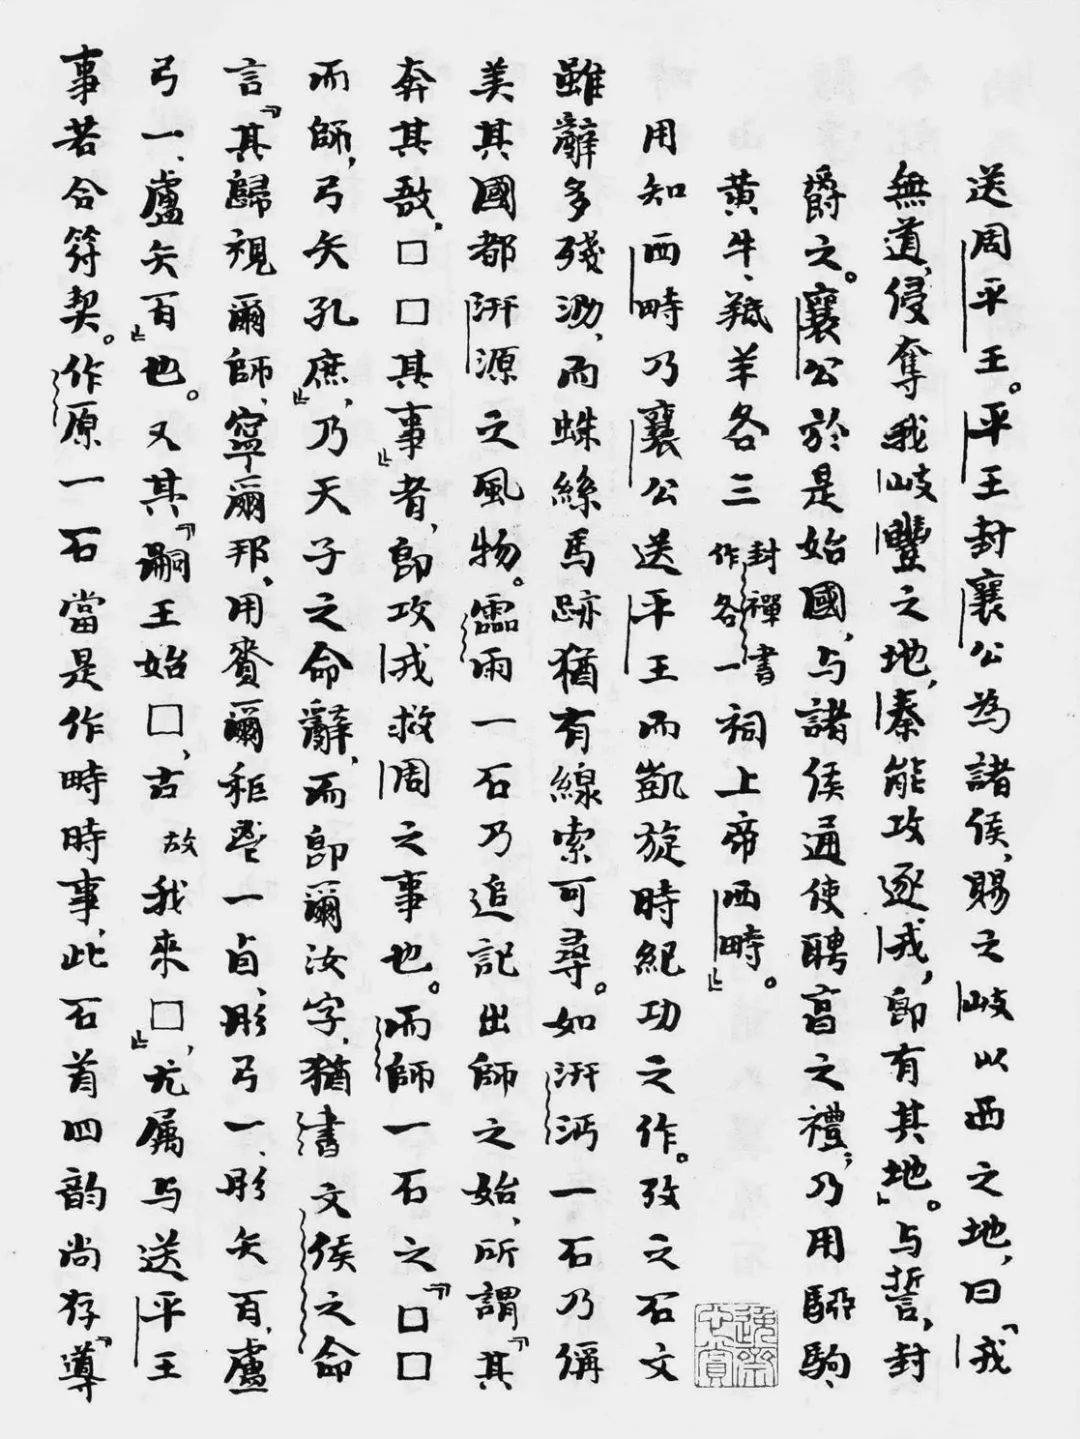 送周平王。平王封襄公為諸侯，賜之岐以西之地，曰『戎
無道，侵奪我岐豐之地，秦能攻逐戎，即有其地』。与誓，封
爵之。襄公於是始國，与諸侯通使聘享之禮；乃用騮駒、
黄牛、羝羊各三封禪書作各一祠上帝西畤。』
用知西畤乃襄公送平王而凱旋時紀功之作。攷之石文
雖辭多殘泐，而蛛絲馬跡猶有線索可尋。如汧沔一石乃偁
美其國都汧源之風物。霝雨一石乃追記出師之始，所謂『其
奔其敔。□□其事』者，即攻戎救周之事也。而師一石之『□□
而師，弓矢孔庶』，乃天子之命辭，而即爾汝字，猶書文侯之命
言『其歸視爾師，寧爾邦，用賚爾秬鬯一卣，彤弓一、彤矢百，盧
弓一、盧矢百』也。又其『嗣王始□，古故我來□』，尤属与送平王
事若合符契。作原一石當是作畤時事，此石首四韵尚存『導